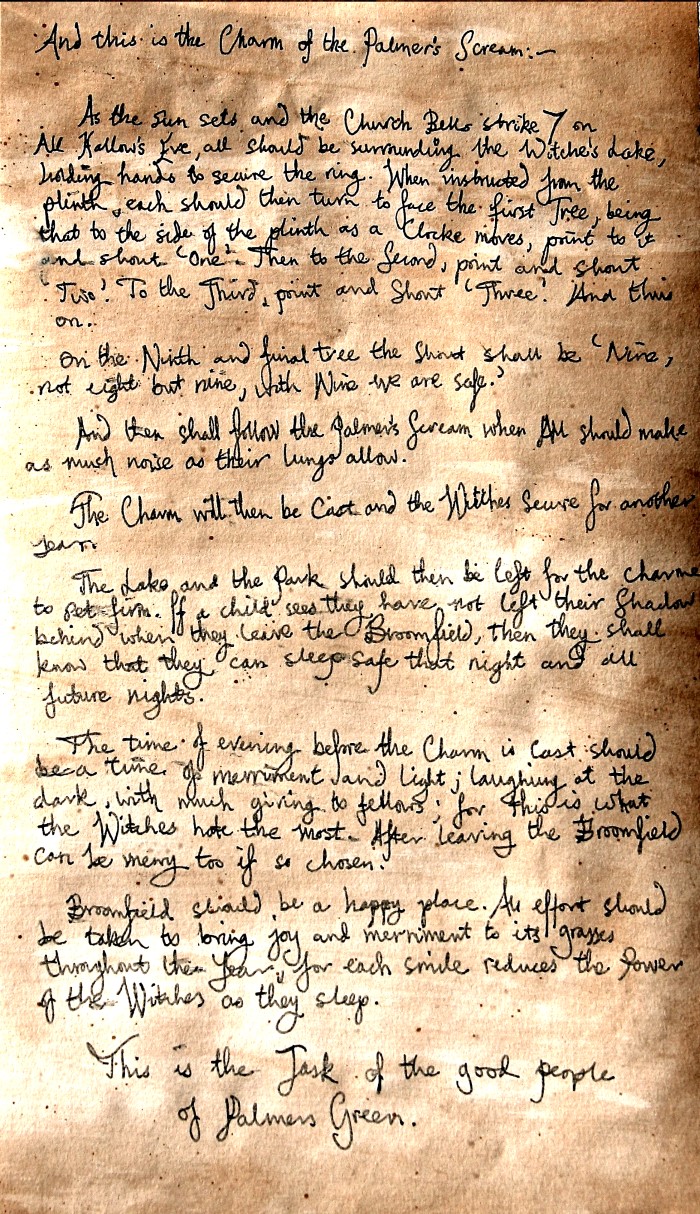 And this is the Charm of the Palmer's Scream:-
As the sun sets and the Church Bells strike 7 on
All Hallow's Eve, all should be surrounding the Witche's Lake,
holding hands to secure the ring. When instructed from the
plinth, each should then turn to face the first Tree, being
that to the side of the plinth as a Clocke moves, point to it
and shout 'One'. Then to the Second, point and shout
'Two'. To the Third, point and Shout 'Three'. And thus
on.
On the Ninth and final tree the Shout shall be 'Nine,
not eight but nine, with Nine we are safe.'
And then shall follow the Palmer's Scream when All should make
as much noise as their lungs allow.
The Charm will then be Cast and the Witches Secure for another
year.
The Lake and the Park should then be left for the charme
to set firm. If a child sees they have not left their Shadow
behind when they leave the Broomfield, then they shall
know that they can sleep safe that night and all
future nights.
The time of evening before the Charm is Cast should
be a time of merriment and light; laughing at the
dark, with much giving to fellows; for this is what
the Witches hate the most. After leaving the Broomfield
can be merry too if so chosen.
Broomfield should be a happy place. All effort should
be taken to bring joy and merriment to its grasses
throughout the Year, for each smile reduces the Power
of the Witches as they sleep.
This is the Task of the good people
of Palmers Green.